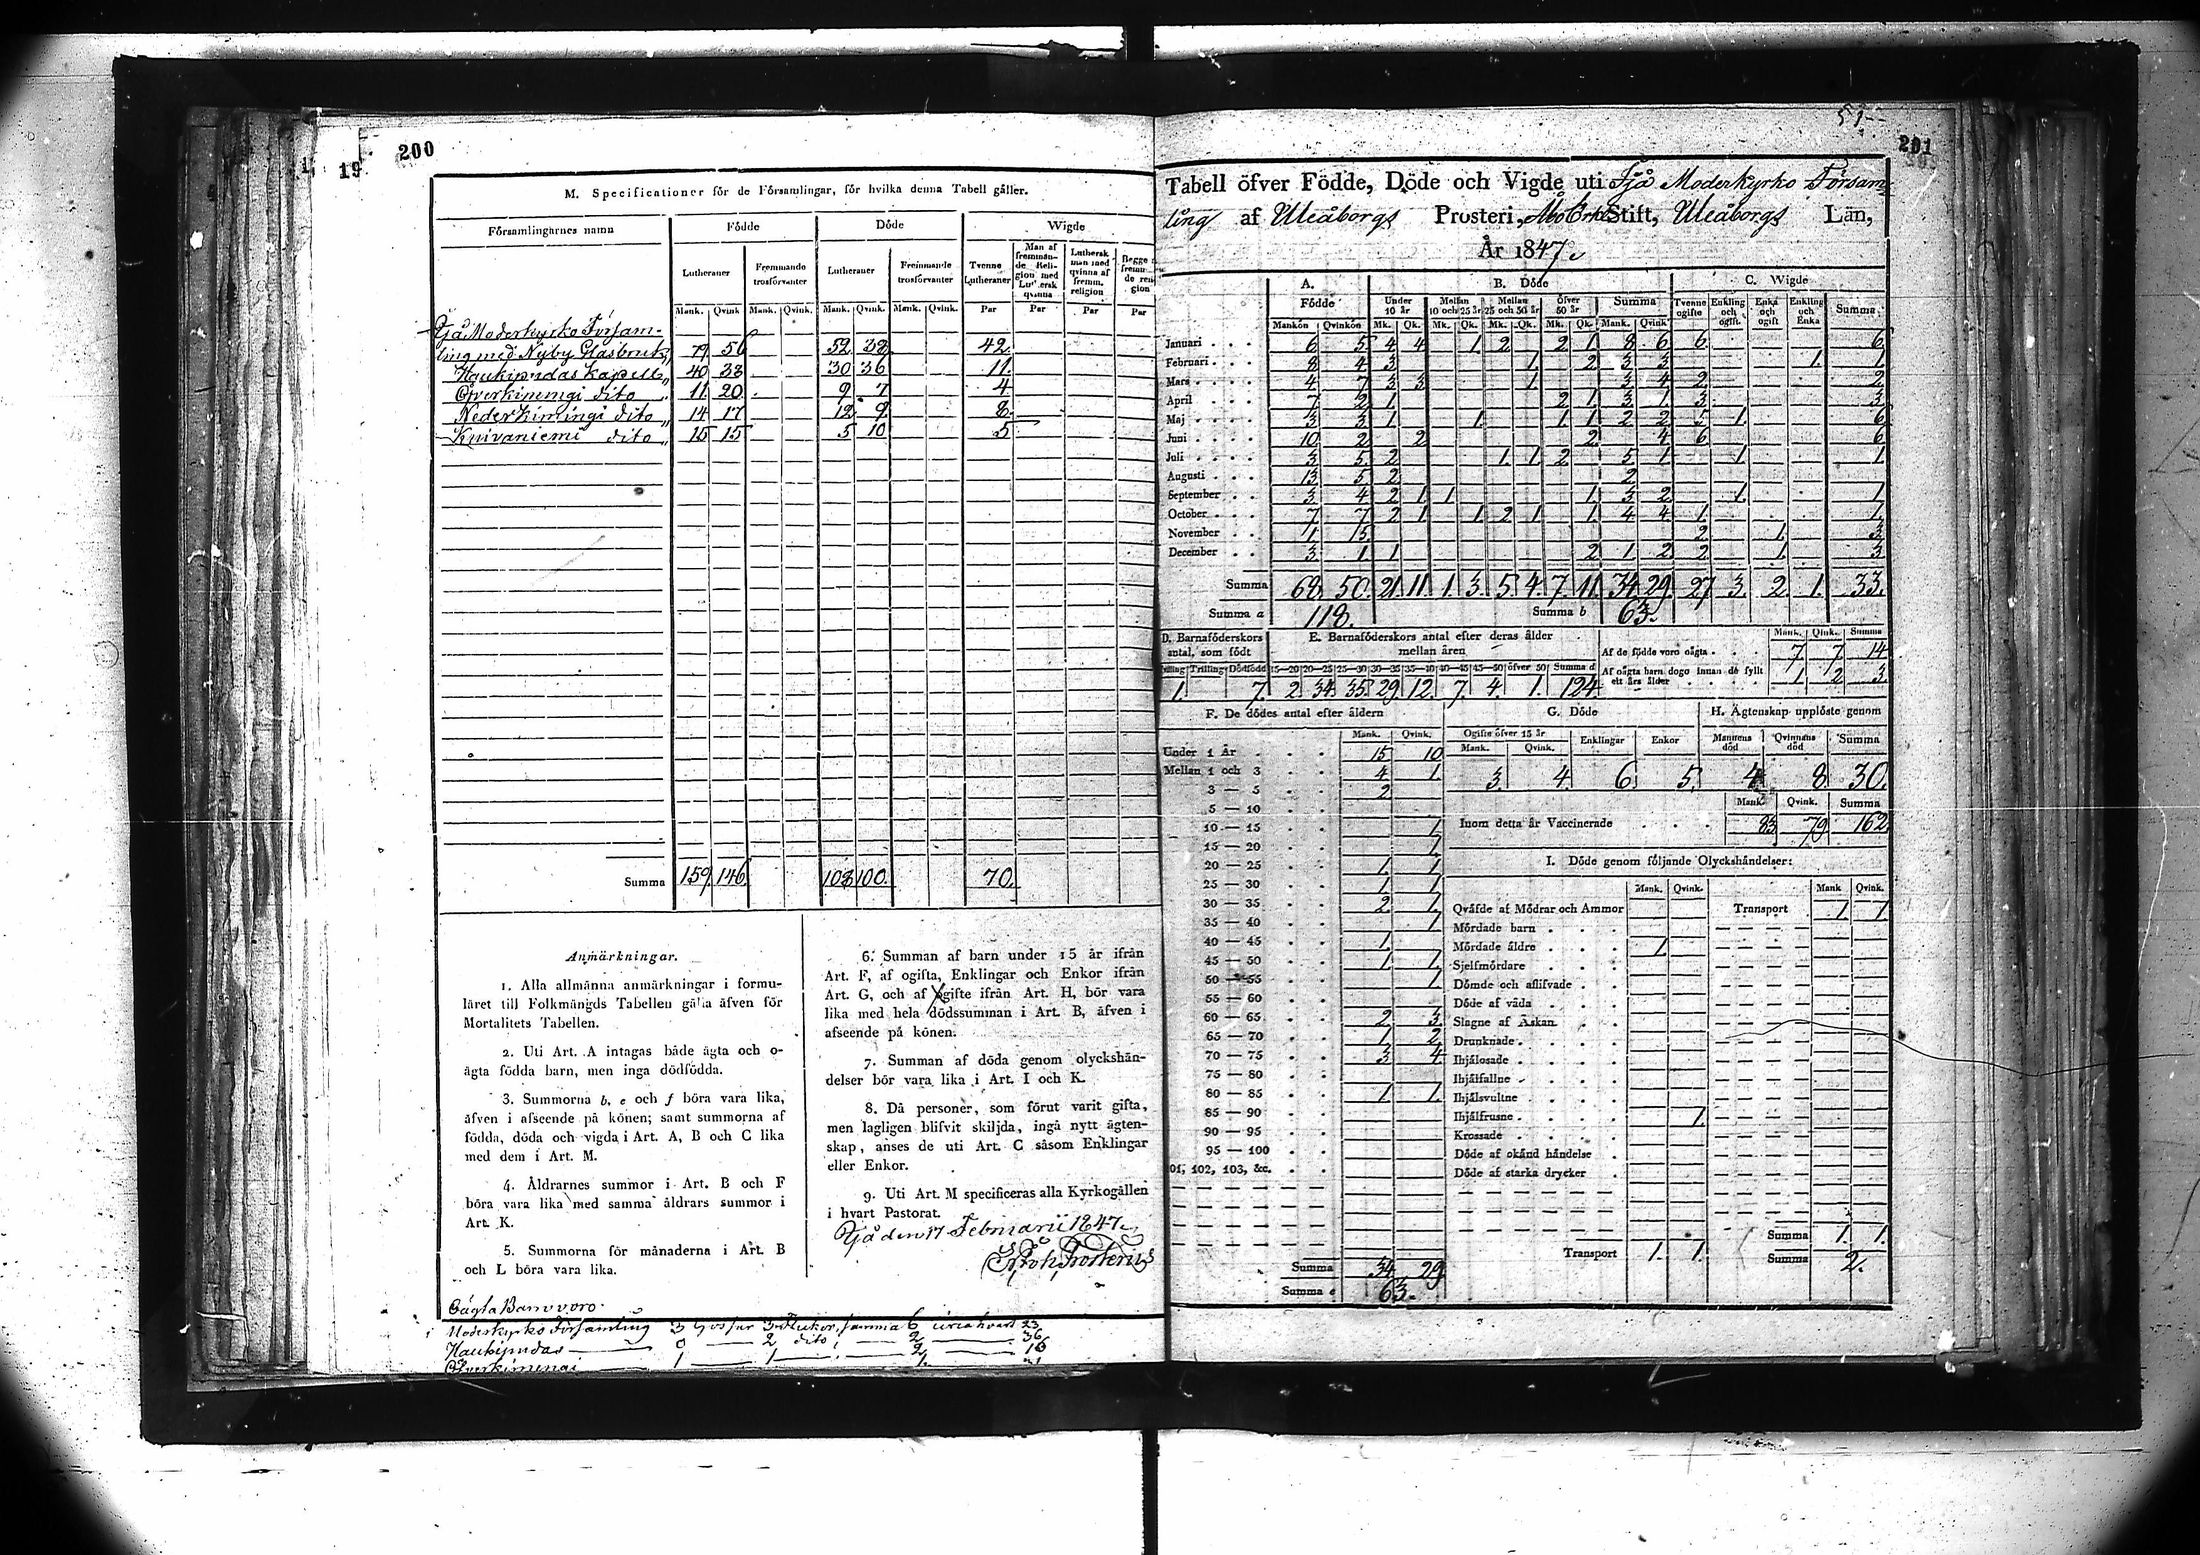 19
200
M. Specificationer för de Församlingar, för hvilka denna Tabell gäller.
Församlingarnes namn Födde Döde Wigde
Lutheraner Fremmande trosförvanter Lutheraner Fremmande trosförvanter Tvenne Lutheraner Man af fremmande Religion med Luthersk qvinna Luthersk man med qvinna af fremm. religion
Mank. Qvink Mank. Qvink. Mank. Qvink. Mank. Qvink. Par Par Par Par
Ijå Moderkyrko Försam-
ling med Nyby Glasbruk 79 56 52 38 42
Haukipudas Kapell 40 38 30 36 11
Öfverkiminigi dito 11 20 9 7 4
Nederkimingi dito 14 17 12 9 8
Kuivaniemi dito 15 15 5 10 5
Summa 159 146 108 100 70
Anmärkningar.
1. Alla allmänna anmärkningar i formu-
läret till Folkmängds Tabellen gälla äfven för
Mortalitets Tabellen.
2. Uti Art. A intagas både ägta och o-
ägta födda barn, men inga dödfödda.
3. Summorna b, e och f böra vara lika,
äfven i afseende på könen; samt summorna af
födda, döda och vigda i Art. A, B och C lika
med dem i Art. M.
4. Åldrarnes summor i Art. B och F
böra vara lika med samma åldrars summor i
Art. K.
5. Summorna för månaderna i Art. B
och L böra vara lika.
6. Summan af barn under 15 år ifrån
Art. F, af ogifta, Enklingar och Enkor ifrån
Art. G, och af gifte ifrån Art. H, bör vara
lika med hela dödssumman i Art. B, äfven i
afseende på könen.
7. Summan af döda genom olyckshän-
delser bör vara lika i Art. I och K.
8. Då personer, som förut varit gifta,
men lagligen blifvit skiljda, ingå nytt ägten-
skap, anses de uti Art. C såsom Enklingar
eller Enkor.
9. Uti Art. M specificeras alla Kyrkogällen
i hvart Pastorat.
Ijå den 17 Februarii 1847
Frosterus
Oägta Barn voro
Moderkyrko Församling 3 Gossar 3 Flickor, summa 6 23
Haukipudas 0 2 dito 2 36
Öfverkiminigi 1 1 2 16
201
Tabell öfver Födde, Döde och Vigde uti Ijå Moderkyrko Försam-
ling af Uleåborgs Prosteri, Åbo Erke Stift, Uleåborgs Län,
År 1847
A. Födde B. Döde C. Wigde
Under 10 år Mellan 10 och 25 år Mellan 25 och 50 år Öfver 50 år Summa Tvenne ogifte Enkling och ogift. Enka och ogift Enkling och Enka Summa
Mankön Qvinkön Mk. Qk. Mk. Qk. Mk. Qk. Mk. Qk. Mank. Qvink
Januari 6 5 4 4 1 2 2 1 8 6 6 6
Februari 8 4 3 1 2 3 3 1 1
Mars 4 7 3 3 1 3 4 2 2
April 7 2 1 2 1 3 1 3 3
Maj 3 3 1 1 1 1 2 2 5 1 6
Juni 10 2 2 2 4 6 6
Juli 3 5 2 1 1 2 5 1 1 1
Augusti 13 5 2 2
September 3 4 2 1 1 1 3 2 1 1
October 7 7 2 1 1 2 1 1 4 4 1 1
November 1 15 2 1 3
December 3 1 1 2 1 2 2 1 3
Summa 68 50 21 11 1 3 5 4 7 11 34 29 27 3 2 1 33
Summa a 118. Summa b 63.
D. Barnaföderskors antal, som födt E. Barnaföderskors antal efter deras ålder mellan åren Mank. Qink. Summa
Af de födde voro oägta 7 7 14
Af oägta barn dogo innan de fyllt ett års ålder 1 2 3
Trilling Dödfödd 15—20 20—25 25—30 30—35 35—40 40—45 45—50 öfver 50 Summa d
1. 7. 2 34 35 29 12 7 4 1 124
F. De dödes antal efter åldern
Mank. Qvink.
Under 1 År 15 10
Mellan 1 och 3 4 1
3 — 5 2
5 — 10
10 — 15 1
15 — 20 1
20 — 25 1 1
25 — 30 1 1
30 — 35 2 1
35 — 40 1
40 — 45 1
45 — 50 1 1
50 — 55 1
55 — 60
60 — 65 2 3
65 — 70 1 2
70 — 75 3 4
75 — 80
80 — 85 1 1
85 — 90
90 — 95
95 — 100
101, 102, 103, &c.
Summa 34 29
Summa e 63.
G. Döde H. Ägtenskap upplöste genom
Ogifte öfver 15 år Enklingar Enkor Mannens död Qvinnans död Summa
Mank. Qvink.
3 4 6 5 4 8 30
Mank Qvink. Summa
Inom detta år Vaccinerade 83 79 162
I. Döde genom följande Olyckshändelser:
Mank. Qvink. Mank Qvink.
Qväfde af Mödrar och Ammor Transport 1 1
Mördade barn
Mördade äldre 1
Sjelfmördare
Dömde och aflifvade
Döde af våda
Slagne af Åskan
Drunknade
Ihjälosade
Ihjälfallne
Ihjälsvultne
Ihjälfrusne 1
Krossade
Döde af okänd händelse
Döde af starka drycker
Summa 1 1
Transport 1 1 Summa 2.